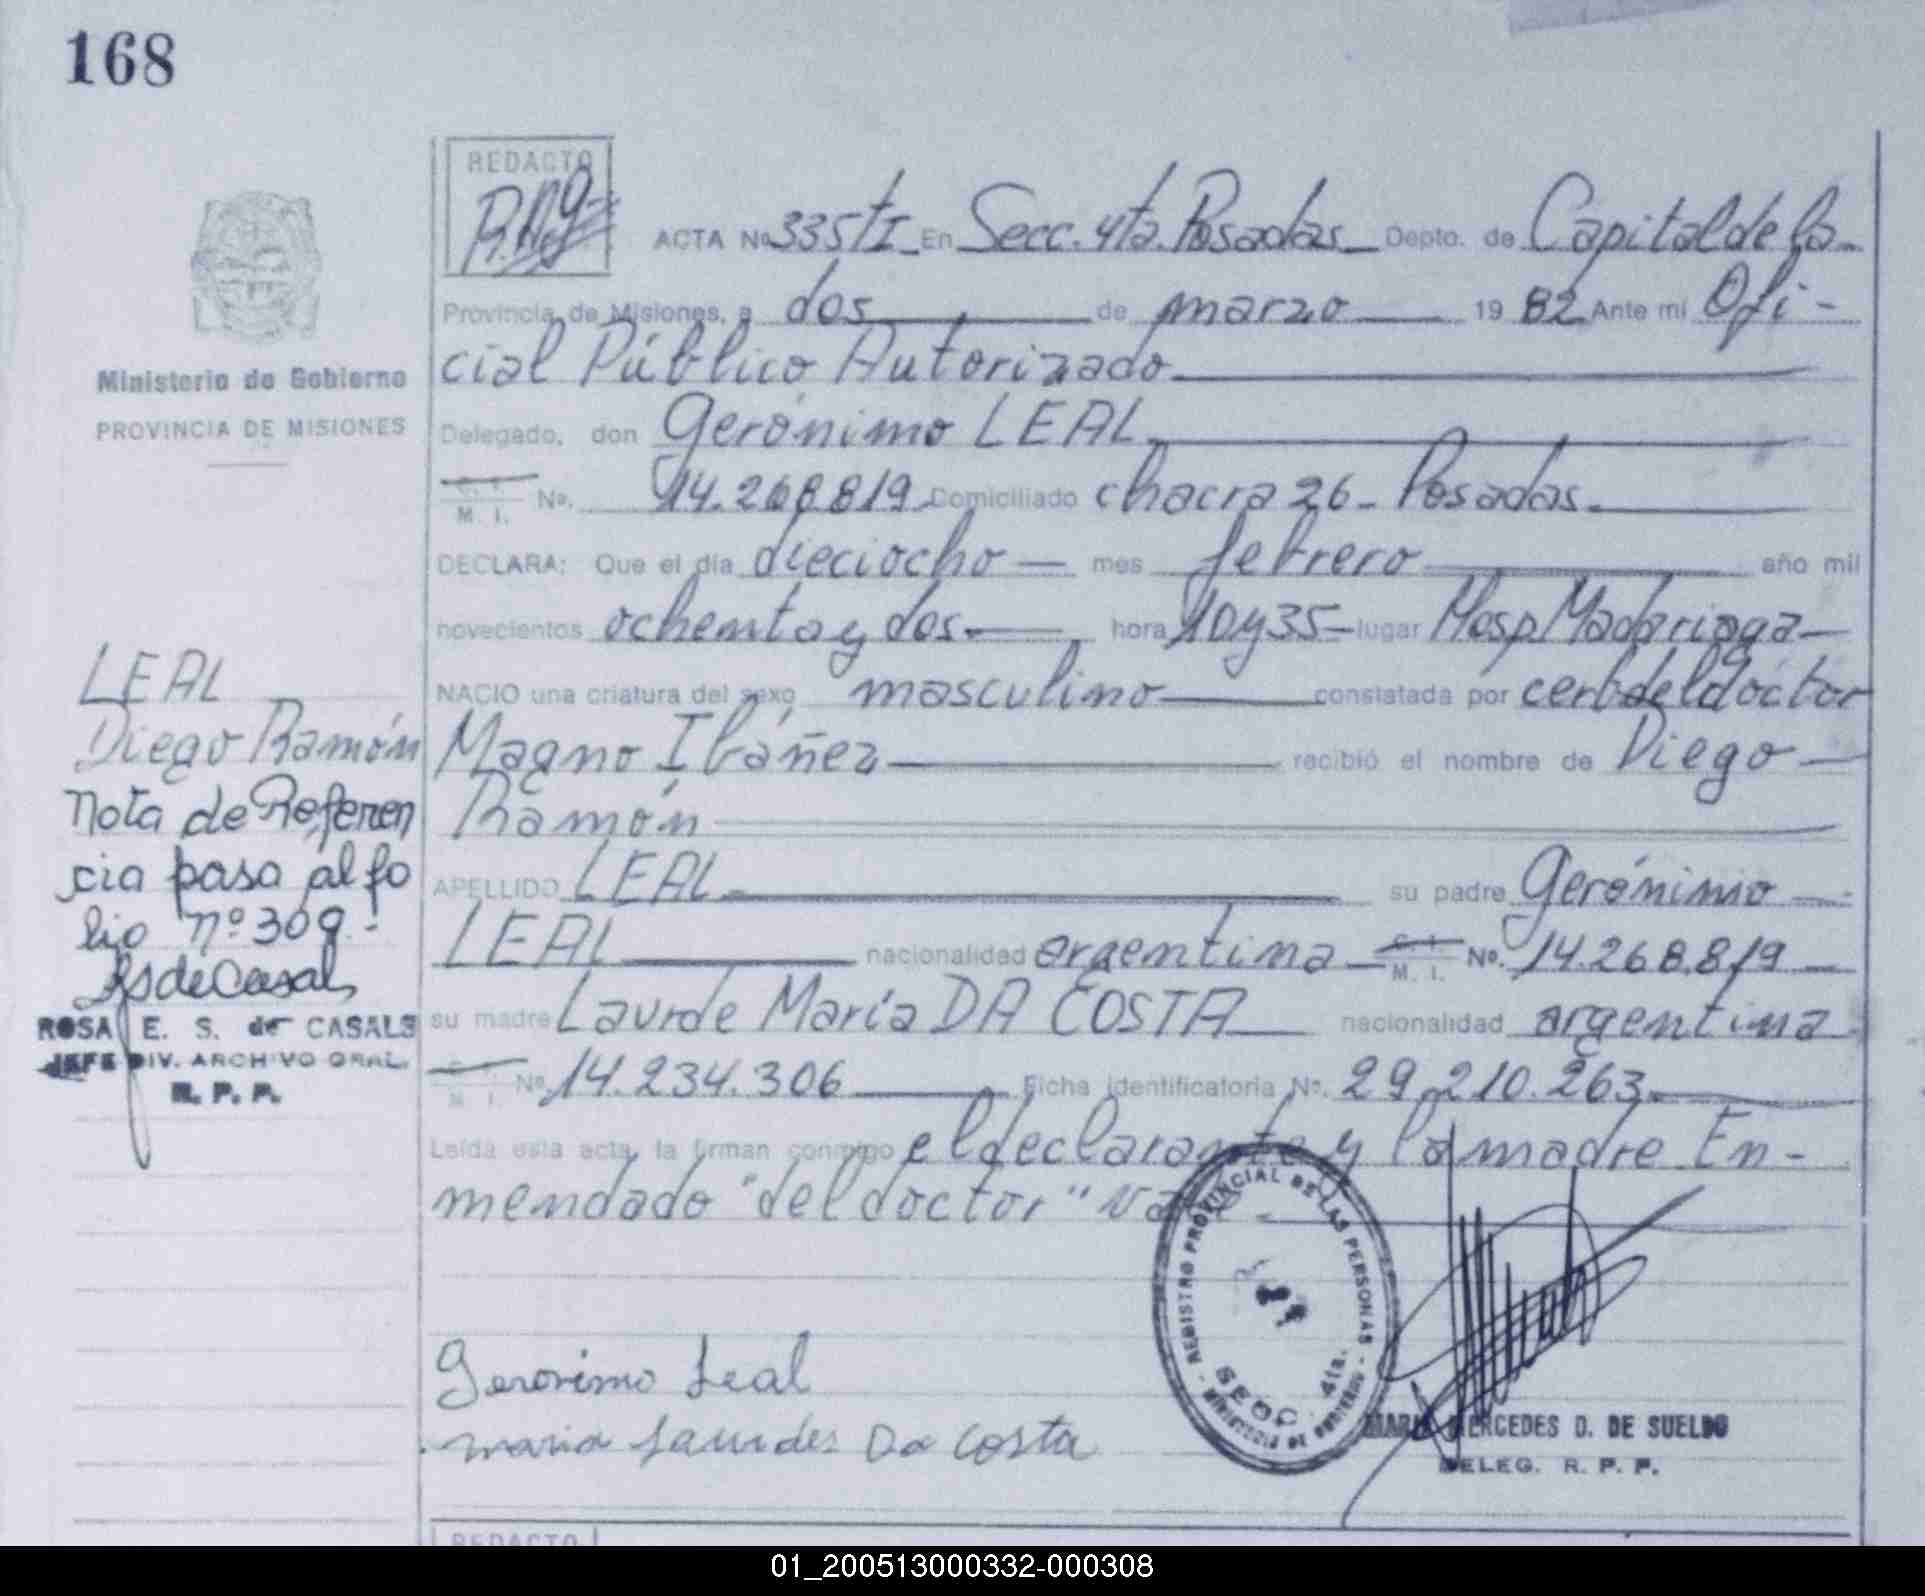 168
REDACTO
ACTA Nº 335 tI En Secc. 4ta. Posadas Depto. de Capital de la
Provincia de Misiones, a dos de marzo 1982 Ante mi Ofi-
cial Público Autorizado
Ministerio de Gobierno
PROVINCIA DE MISIONES
Delegado, don Gerónimo LEAL
C. I.
M. I. Nº. 14.268.819 Domiciliado chacra 26 - Posadas
DECLARA: Que el día dieciocho mes febrero año mil
novecientos ochenta y dos hora 10 y 35 lugar Hosp Madariaga
NACIO una criatura del sexo masculino constatada por cert. del doctor
Magno Ibáñez recibió el nombre de Diego
Ramón
APELLIDO LEAL su padre Gerónimo
LEAL nacionalidad argentina C. I. M. I. Nº. 14.268.819
su madre Laurde María DA COSTA nacionalidad argentina
M. I. Nº. 14.234.306 Ficha identificatoria Nº. 29.210.263
Leída esta acta, la firman conmigo el declarante y la madre En-
mendado "del doctor" Vale
LEAL
Diego Ramón
Nota de Referen
cia pasa al fo
lio nº 309.-
RSdeCasals
ROSA E. S. de CASALS
JEFE DIV. ARCHIVO GRAL.
R. P. P.
Geronimo Leal
maria Lourdes Da Costa
REGISTRO PROVINCIAL DE LAS PERSONAS
SECC. 4ta.
MINISTERIO DE GOBIERNO
MARIA MERCEDES D. DE SUELDO
DELEG. R. P. P.
REDACTO
01_200513000332-000308